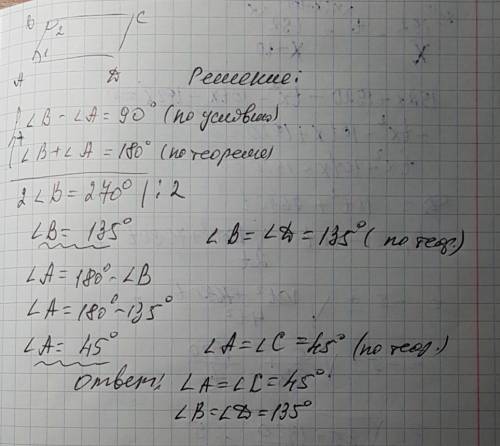 B 2 C
1
A D Решение:
∠B - ∠A = 90° (по условию)
+
∠B + ∠A = 180° (по теореме)
2∠B = 270° | : 2
∠B = 135° ∠B = ∠D = 135° (по теор.)
∠A = 180° - ∠B
∠A = 180° - 135°
∠A = 45° ∠A = ∠C = 45° (по теор.)
Ответ: ∠A = ∠C = 45°
∠B = ∠D = 135°